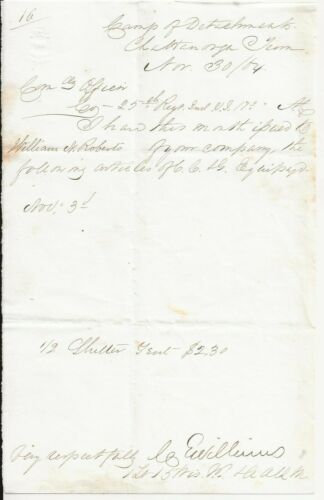 16
Camp of Detachments
Chattanooga Tenn
Nov. 30/64
Com'g Officer
Co — 25th Regt Ind V.I.
I have this month issued to
William H. Roberts of your company, the
following articles of C. C. & G. Equipage
Nov. 3d
1/2 Shelter Tent $2.30
Very respectfully C Williams
1 Lt 13 Wis